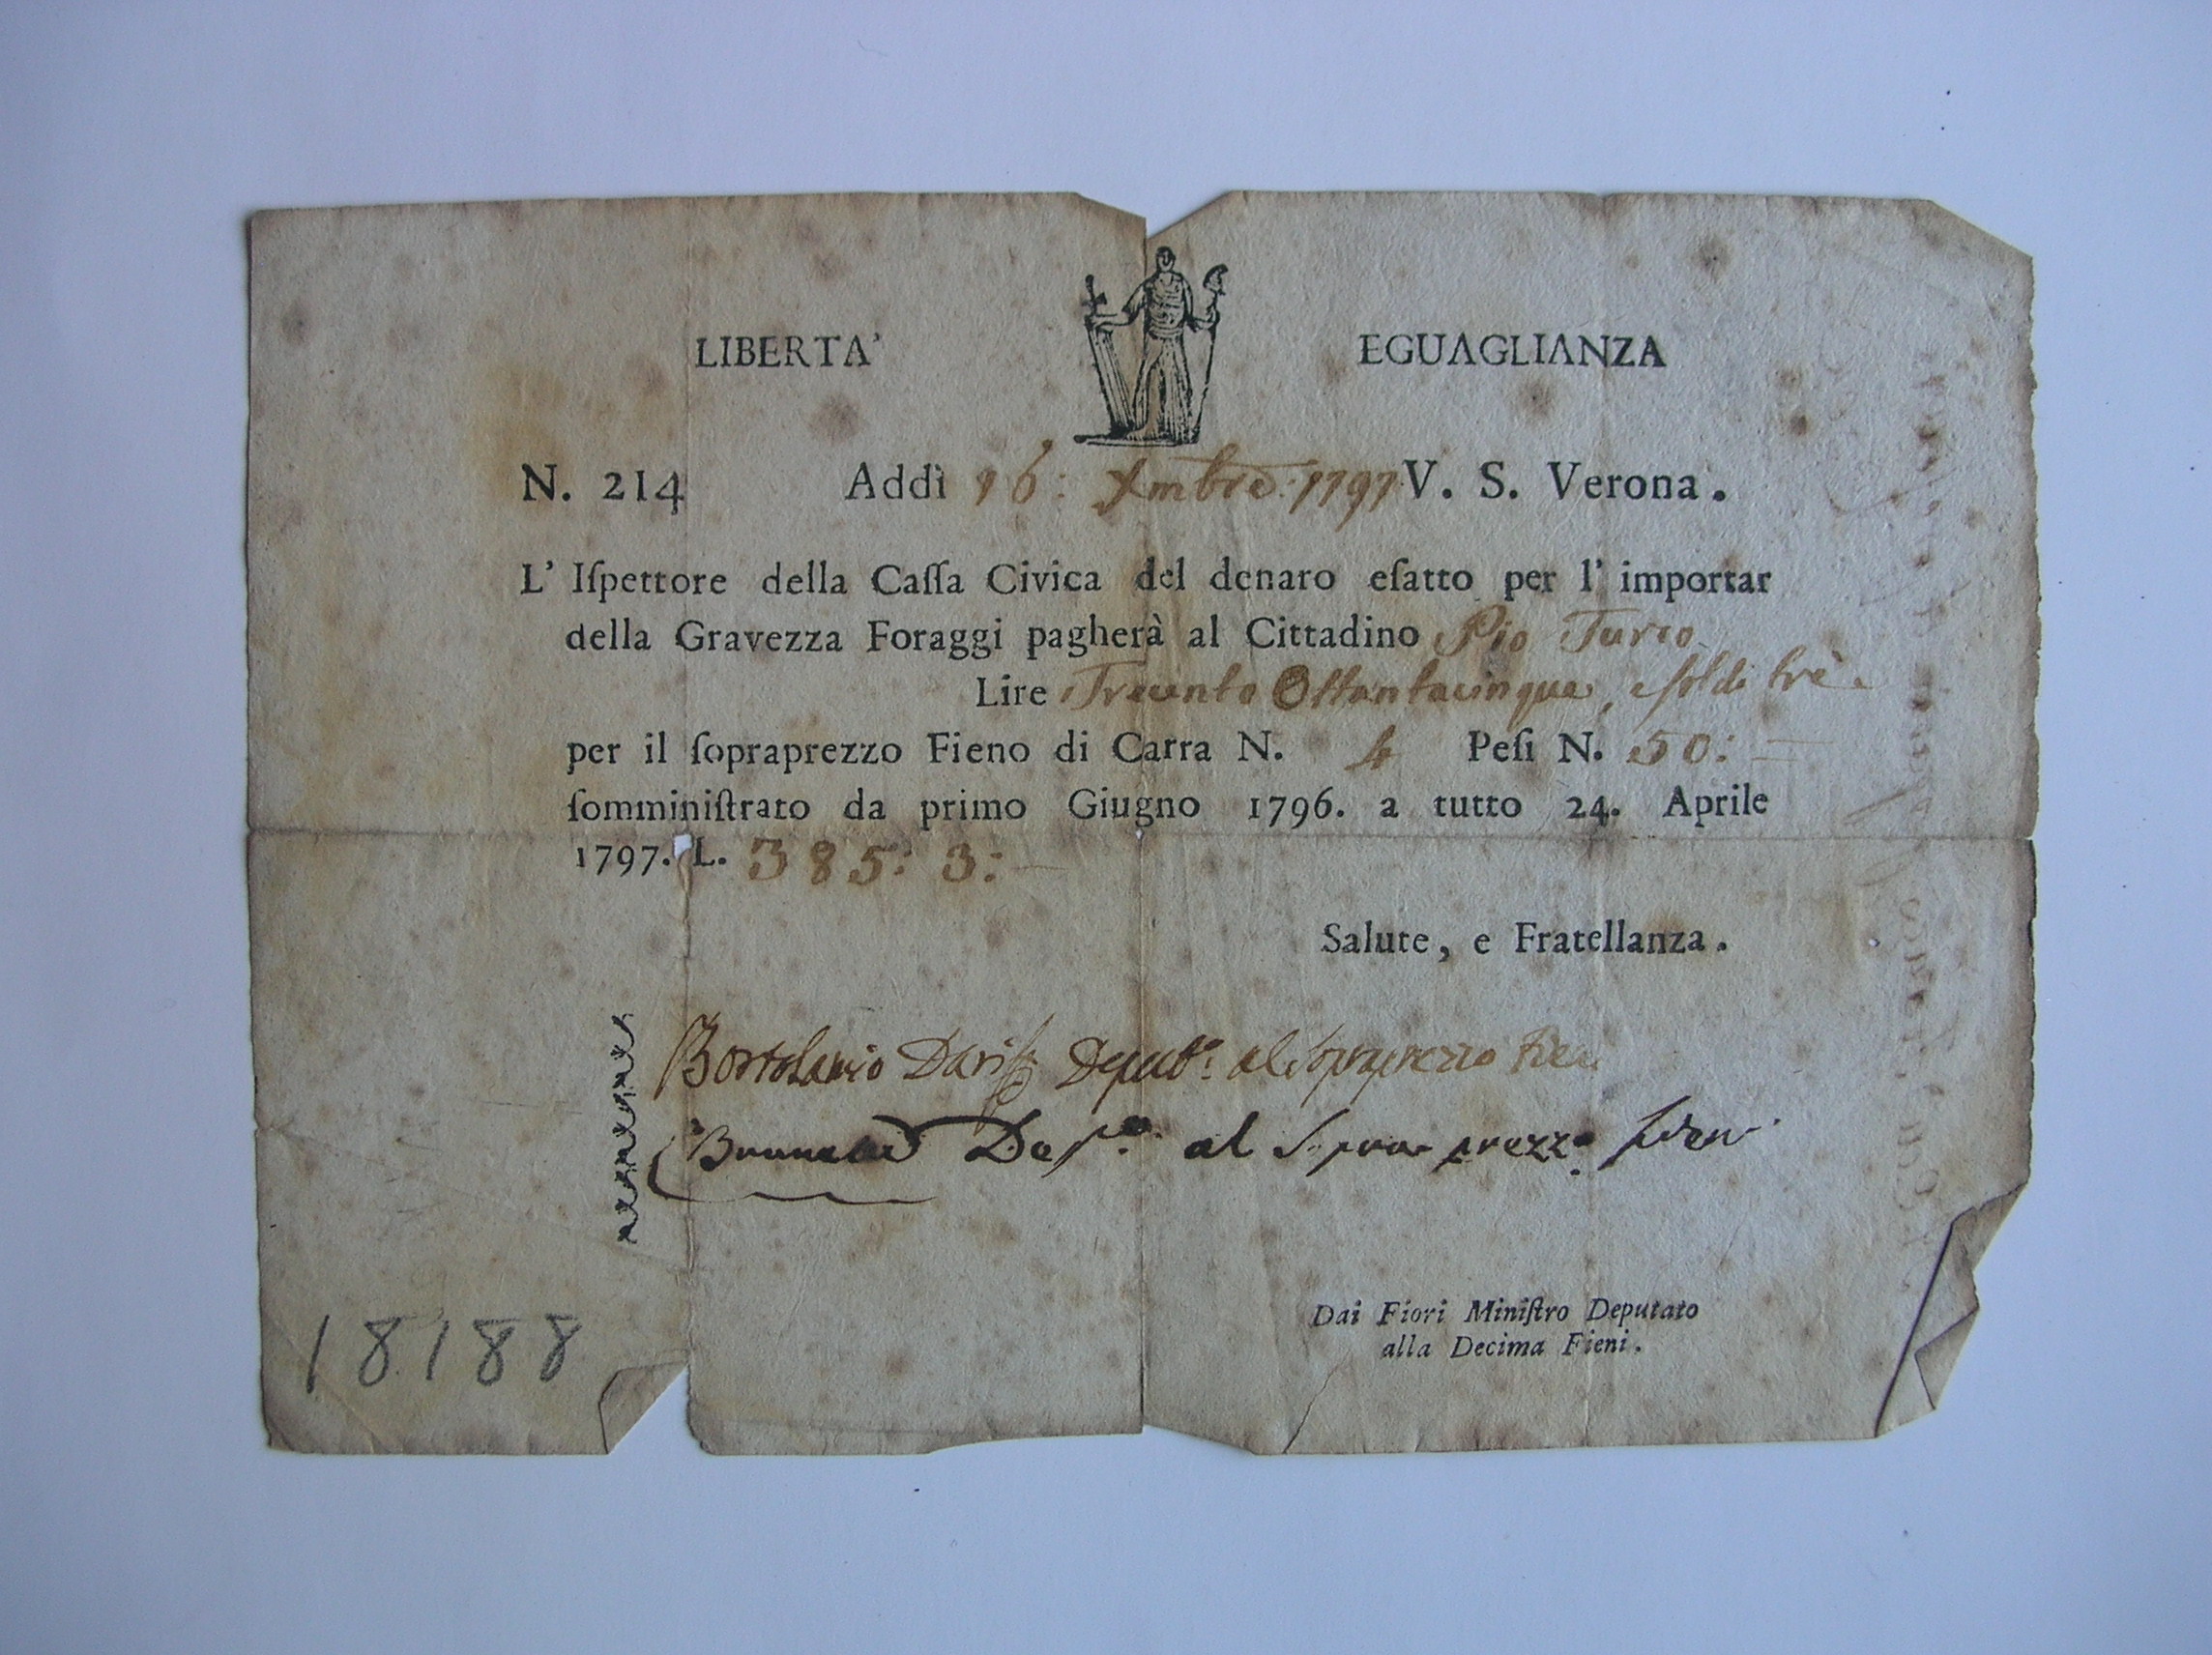 LIBERTA' EGUAGLIANZA
N. 214 Addì 16: Xmbre: 1797 V. S. Verona.
L' Iſpettore della Caſſa Civica del denaro eſatto per l' importar
della Gravezza Foraggi pagherà al Cittadino Pio Turco
Lire Trecento Ottantacinque, e soldi trè
per il ſopraprezzo Fieno di Carra N. 4 Peſi N. 50:
ſomminiſtrato da primo Giugno 1796. a tutto 24. Aprile
1797. L. 385: 3:
Salute, e Fratellanza.
Bortolamio Deput.º al Sopraprezzo
Dep.º al Sopra prezzo fieni
Dai Fiori Miniſtro Deputato
alla Decima Fieni.
18188